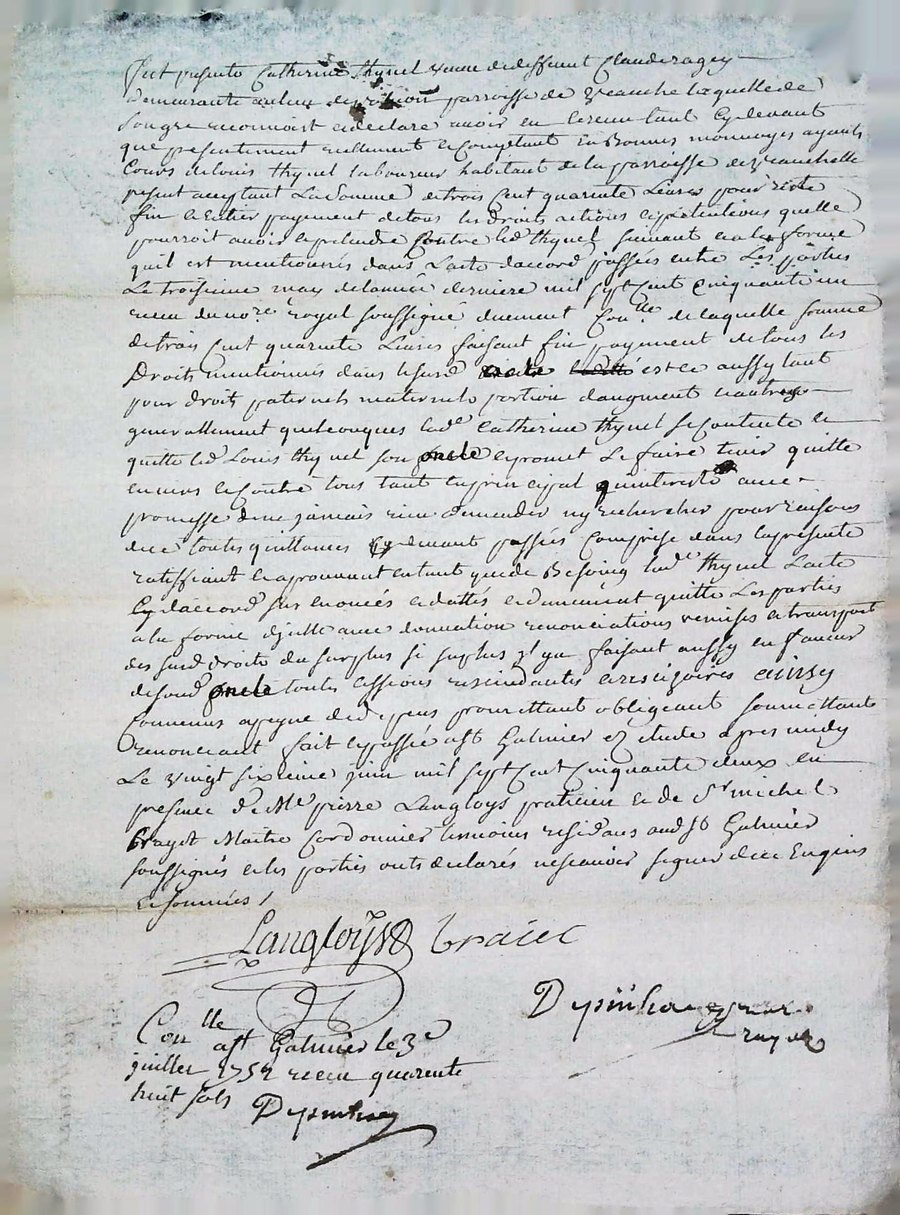 Fut presente Catherine thynel veuve de deffunt Claude ragey
demeurante au lieu de parroisse de Veauche laquelle de
son gre reconnoist et declare avoir eu et receu tant cy devant
que presentement reellement et comptant en Bonnes monnoyes ayants
Cours de louis thynel laboureur habitant de la parroisse de Veauchette
present acceptant La somme de trois Cent quarante Livres pour reste
fin et Entier payement de tous les droits actions et pretentions quelle
pourroit avoir et pretendre Contre led thynel suivant et a la forme
quil est mentionnés dans Lacte daccord passées entre Les parties
Le troisieme may de lannée derniere mil sept Cent Cinquante un
receu du nore royal soussigné duement Conlle de laquelle somme
de trois Cent quarante Livres faisant fin payement de tous les
Droits mentionnés dans le susd acte est ce aussy tant
pour droits paternels maternels portion daugment et autres
generallement quelconques lade Catherine thynel se Contente et
quitte led Louis thynel son oncle et promet Le faire tenir quitte
envers et Contre tous tant en principal quinterests avec
promesse de ne jamais rien demander ny rechercher pour raisons
de ce toutes quittances cy devant passées Comprise dans la presente
ratiffiant et aprouvant en tant que de Besoing lade thynel Lacte
Cy daccord sus enoncés et dattés et duement quitte Les parties
a la forme dicelle avec donnation renonciations remises et transport
des susd droits du surplus si surplus y a faisant aussy en faveur
de sond oncle toutes Cessions rescindantes et rescizoires ainsy
Convenus a peyne de depens promettant obligeant soummettants
renonceant fait et passé a st Galmier ez etude apres midy
Le vingt sixieme juin mil sept Cent Cinquante deux en
presence de Me pierre Langloys praticien et de sr michel
brayet Maitre Cordonnier temoins residans aud st Galmier
soussignés et les parties onts declarés ne scavoir signer de ce Enquis
et sommées /
Langloys braiet
Conlle a st Galmier le 3e
juillet 1752 receu quarente
huit sols